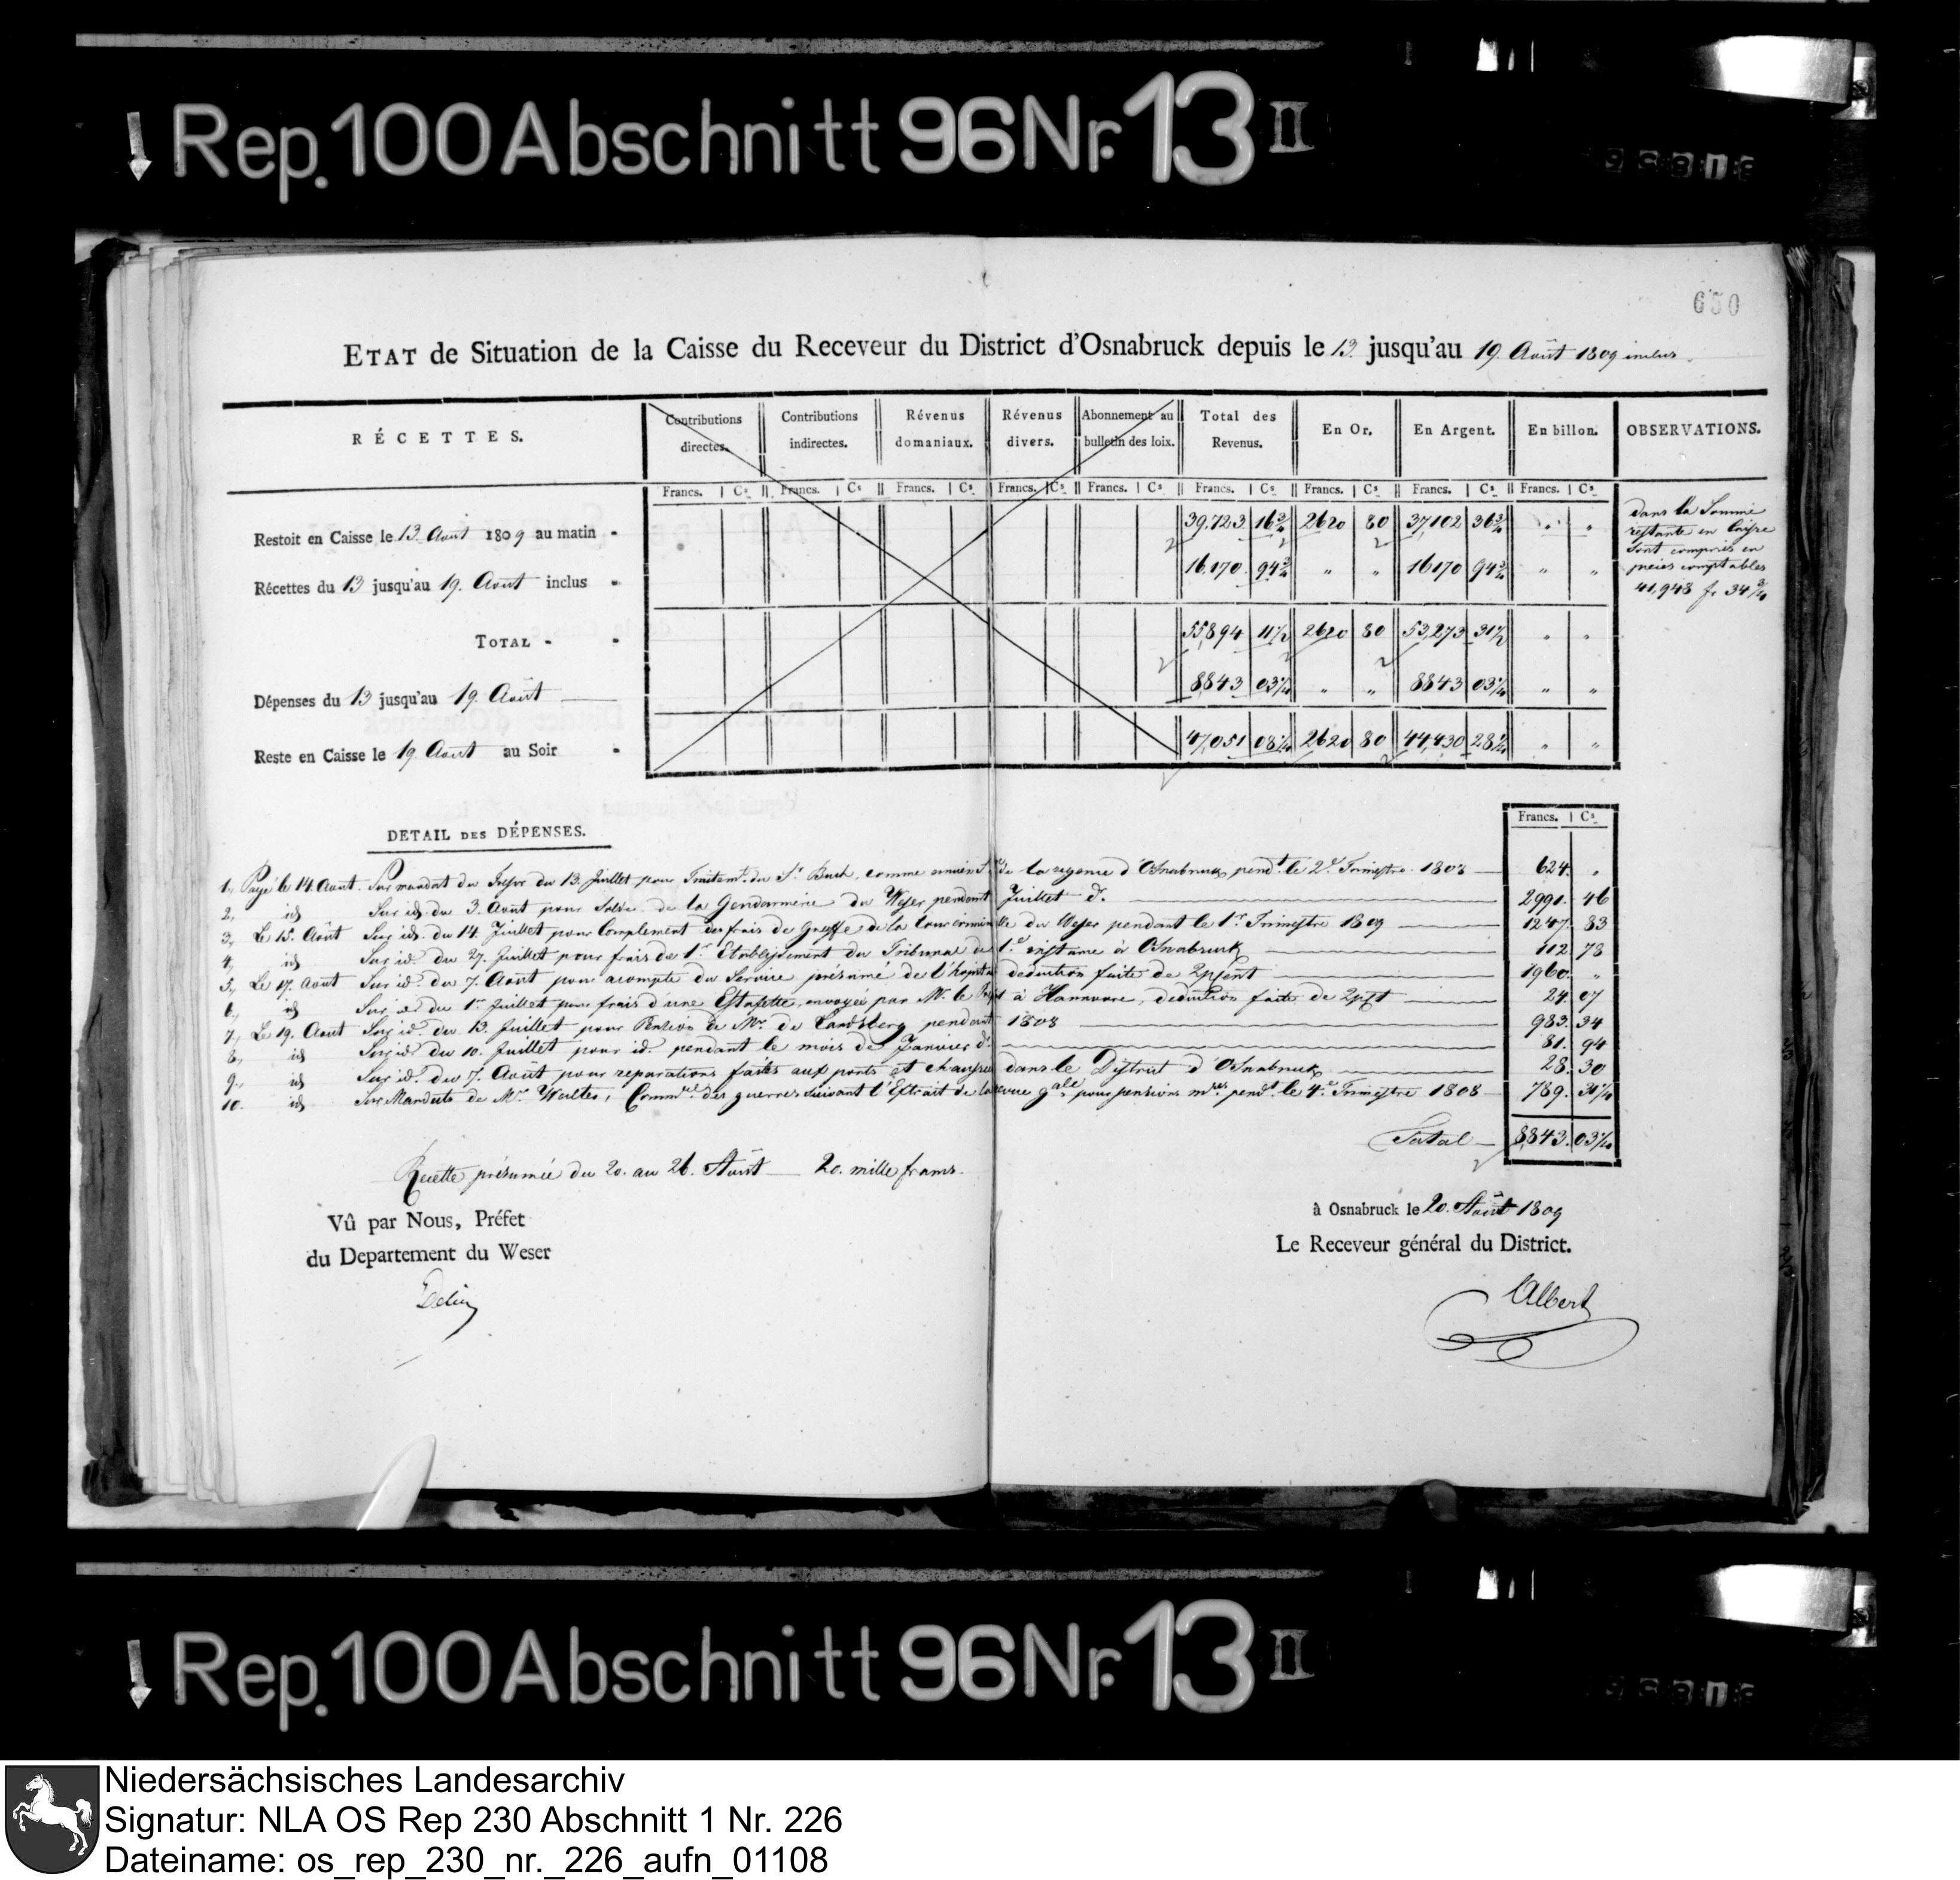 Rep. 100 Abschnitt 96 Nr. 13 II
650
ETAT de Situation de la Caisse du Receveur du District d'Osnabruck depuis le 13 jusqu'au 19. Août 1809 inclus.
RÉCETTES. Contributions directes. Contributions indirectes. Révenus domaniaux. Révenus divers. Abonnement au bulletin des loix. Total des Revenus. En Or. En Argent. En billon. OBSERVATIONS.
Francs. Cs. Francs. Cs Francs. Cs. Francs. Cs. Francs. Cs. Francs. Cs. Francs. Cs. Francs. Cs. Francs. Cs.
Restoit en Caisse le 13. Août 1809 au matin - 39,723 16¾ 2620 80 37,102 36¾ " "
Récettes du 13 jusqu'au 19. Août inclus - 16,170 94¾ " " 16170 94¾ " "
TOTAL - - 55,894 11½ 2620 80 53,273 31½ " "
Dépenses du 13 jusqu'au 19. Août 8843 03¼ " " 8843 03¼ " "
Reste en Caisse le 19. Août au Soir - 47,051 08¼ 2620 80 44,430 28¼ " "
dans la Somme
restante en Caisse
sont comprises en
pieces comptables
41,948 fr. 34¾
DETAIL DES DÉPENSES.
Francs. Cs.
1., Payé le 14. Aout. Sur mandat du Trésor du 13. Juillet pour Traitemt. du Sr. Buch, comme ancien de la regence d'Osnabruck pendt. le 2d. Trimestre 1808 624. "
2., id Sur id. du 3. Août pour Solde de la Gendarmerie du Weser pendant Juillet do. 2991. 46
3., Le 15. Août Sur id. du 14. Juillet pour Complement des frais de Greffe de la Cour criminelle du Weser pendant le 1r. Trimestre 1809 1247. 83
4., id Sur id. du 27. Juillet pour frais de 1r. Etablissement du Tribunal de 1e. instance à Osnabruck 112 78
5., Le 17. Aout Sur id. du 7. Aout pour acompte du Service présumé de l'hopital deduction faite de 2 pCent 1960. "
6., id Sur id. du 1r. Juillet pour frais d'une Estafette, envoyée par Mr. le Préfet à Hannovre, deduction faite de 2 pCt 24. 07
7., Le 19. Aout Sur id. du 13. Juillet pour Pension de Mr. de Landsberg pendant 1808 983. 34
8., id Sur id. du 10. Juillet pour id. pendant le mois de Janvier do. 81. 94
9., id Sur id. du 7. Août pour reparations faites aux ponts et chaussées dans le District d'Osnabruck 28. 30
10. id Sur Mandats de Mr. Commre. des guerres suivant l'Extrait de la revue gale. pour pensions mres. pendt. le 4e. Trimestre 1808 789. 31¼
Total 8,843. 03¼
Recette présumée du 20. au 26. Août 20. mille francs.
Vû par Nous, Préfet
du Departement du Weser
à Osnabruck le 20. Août 1809
Le Receveur général du District.
Albert
Rep. 100 Abschnitt 96 Nr. 13 II
Niedersächsisches Landesarchiv
Signatur: NLA OS Rep 230 Abschnitt 1 Nr. 226
Dateiname: os_rep_230_nr._226_aufn_01108